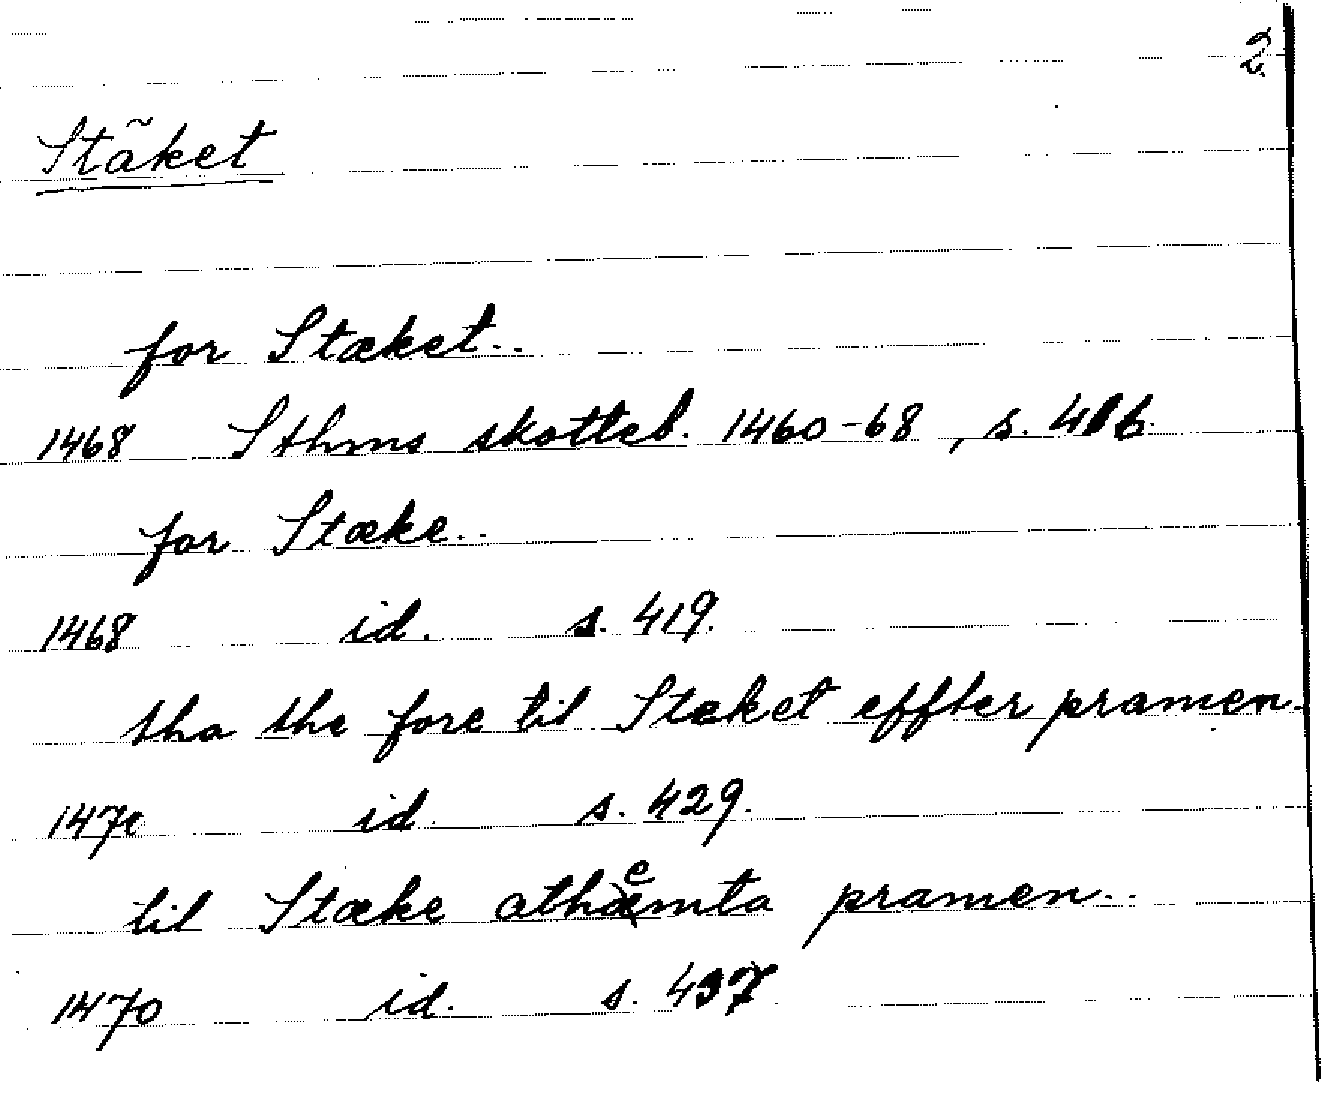 2
Stäket
for Stæket..
1468 Sthms skotteb. 1460-68, s. 416.
for Stæke..
1468 id. s. 419.
tha the fore til Stæket effter pramen..
1470 id. s. 429.
til Stæke athemta pramen..
1470 id. s. 437